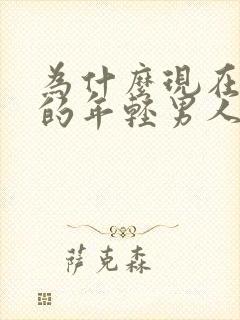 為什麼現在
的年輕男人
萨克森